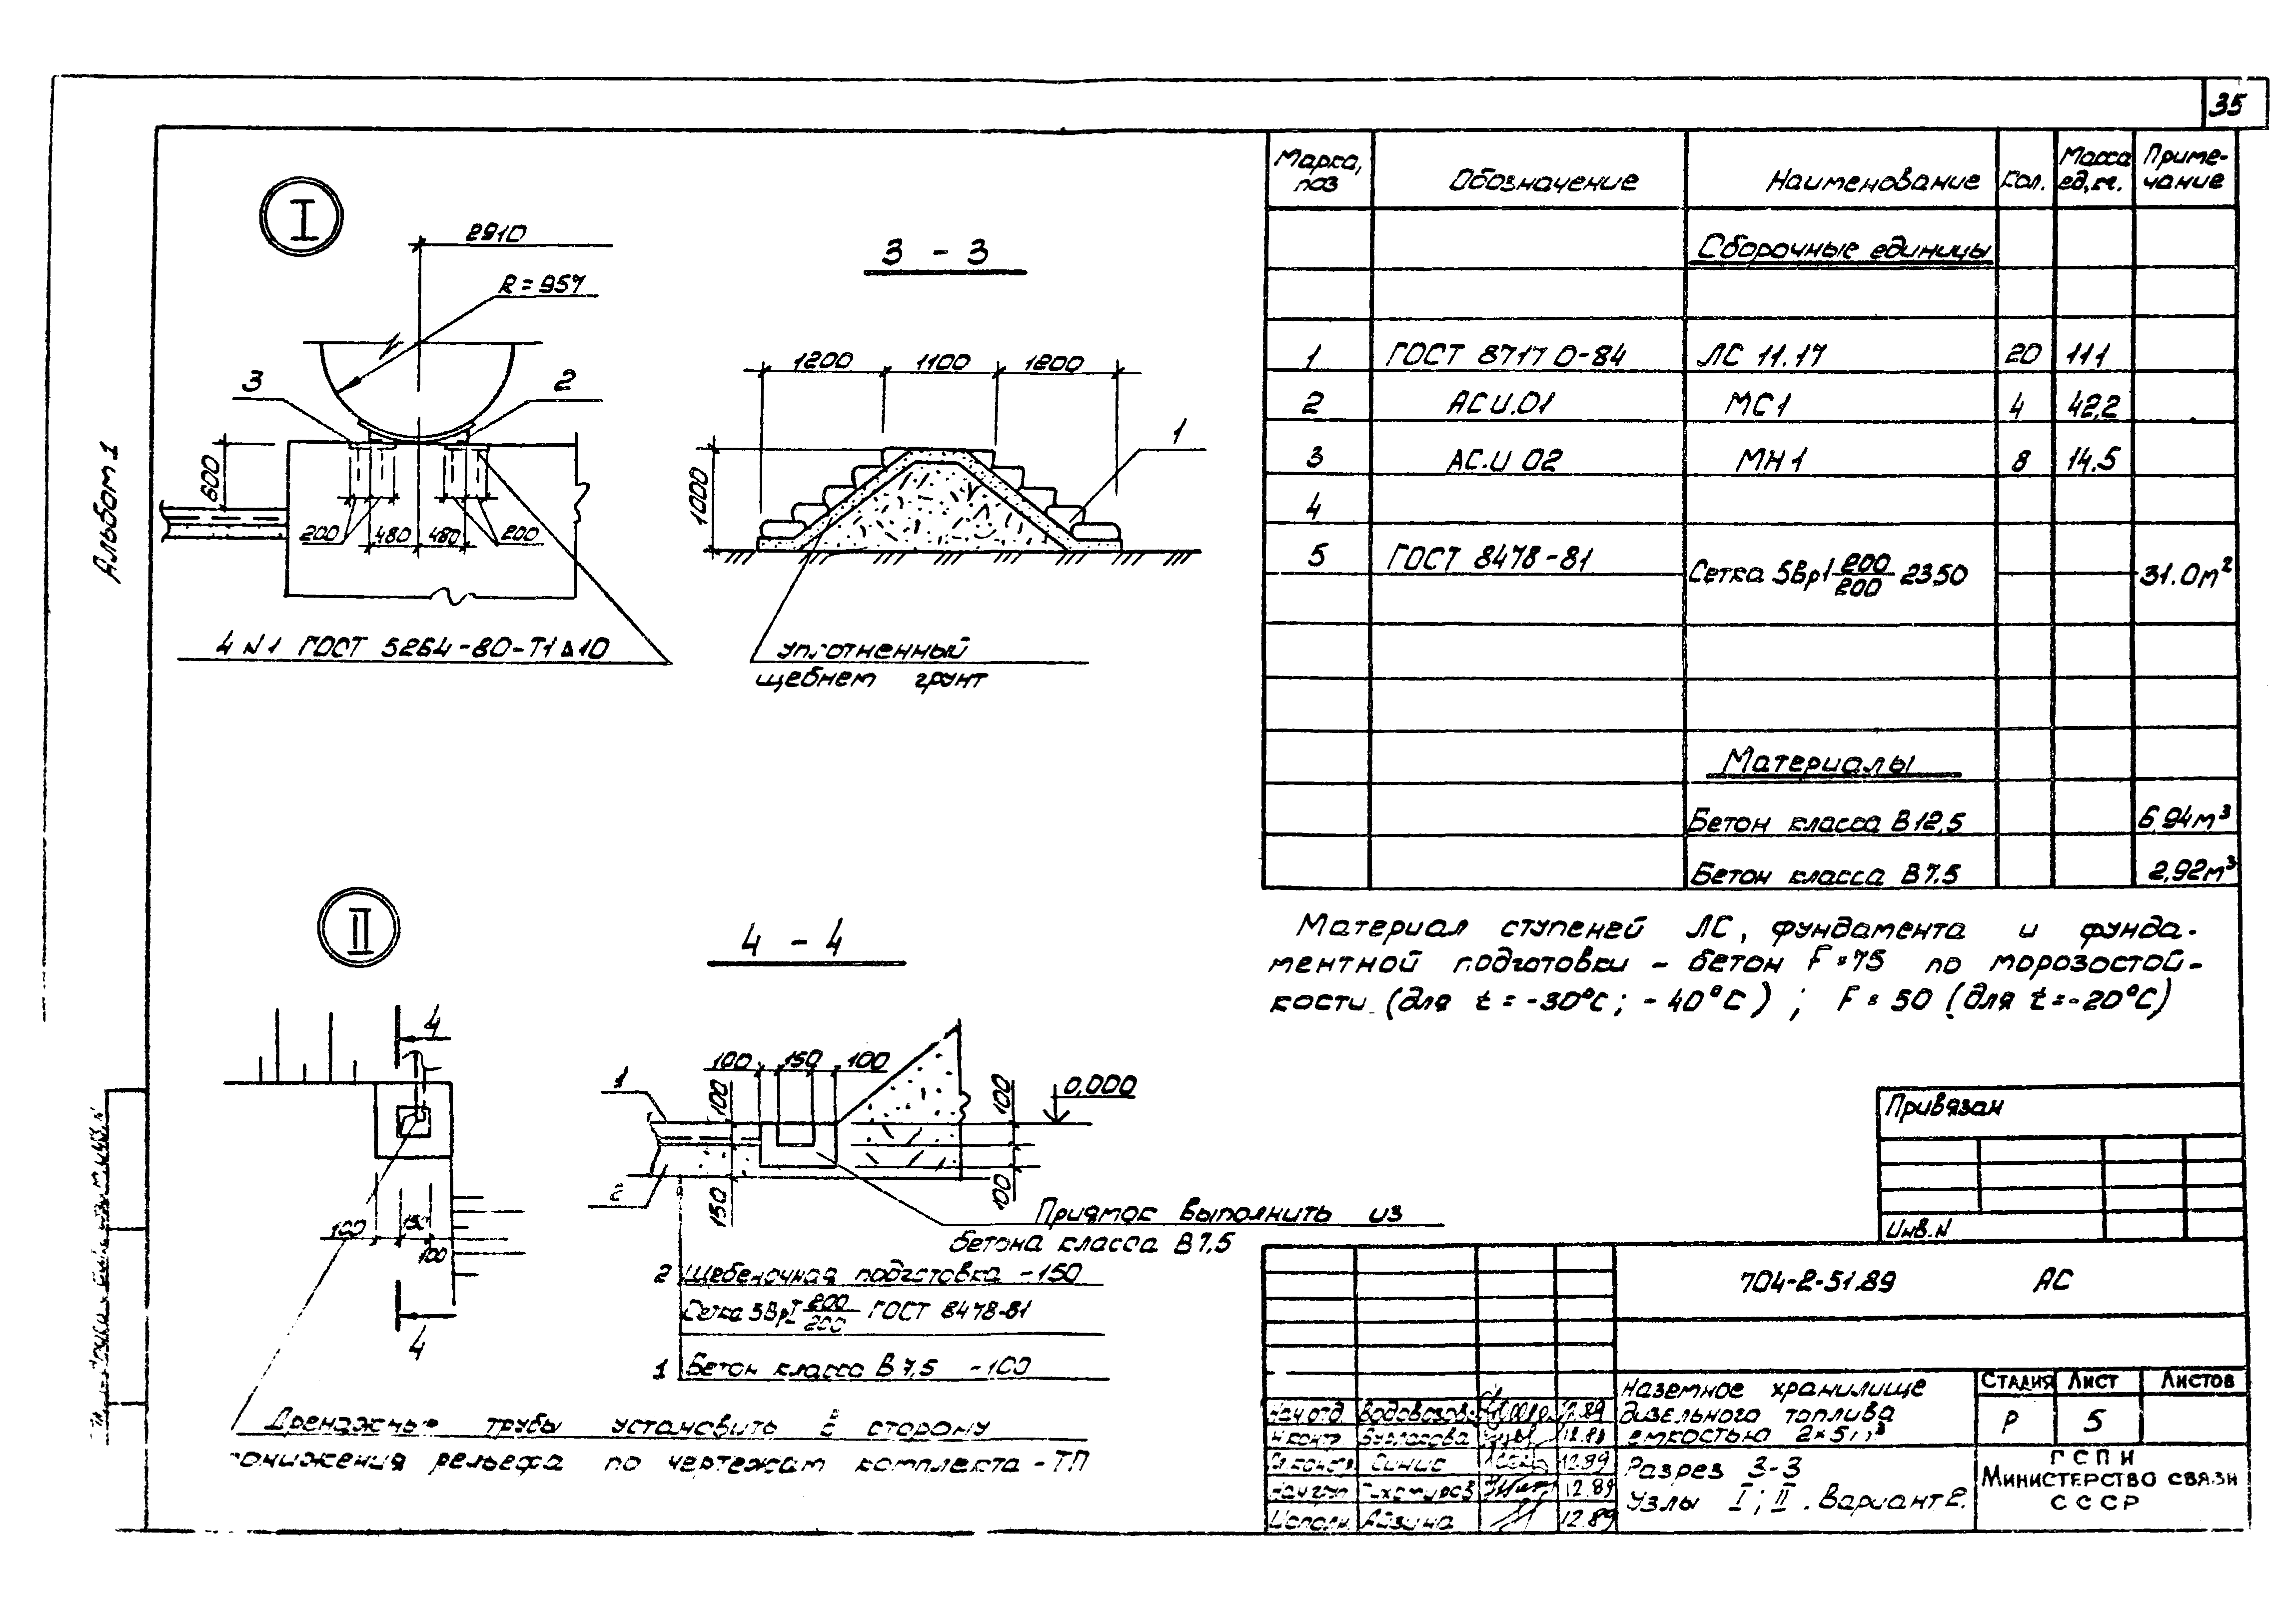 35
Альбом 1
I
2910
R = 957
3
2
600
200
480
480
200
4 №1 ГОСТ 5264-80-Т1 Δ10
3 - 3
1200
1100
1200
1000
1
Уплотненный
щебнем грунт
Марка, поз
Обозначение
Наименование
Кол.
Масса ед, кг.
Приме-чание
Сборочные единицы
1 ГОСТ 8717 0-84 ЛС 11.17 20 111
2 АС И.01 МС1 4 42,2
3 АС.И 02 МН1 8 14.5
4
5 ГОСТ 8478-81 Сетка 5Вр1 200/200 2350 31.0м²
Материалы
Бетон класса В12,5 6,94м³
Бетон класса В7.5 2,92м³
Материал ступеней ЛС, фундамента и фунда-
ментной подготовки - бетон F=75 по морозостой-
кости (для t = -30°С; -40°С) ; F = 50 (для t=-20°С)
II
4
100
150
100
4
Дренажные трубы установить в сторону
понижения рельефа по чертежам комплекта -ТП
4 - 4
100
150
100
1
100
0,000
100
2
150
100
Приямок выполнить из
бетона класса В7,5
2 Щебеночная подготовка -150
Сетка 5ВрI 200/200 ГОСТ 8478-81
1 Бетон класса В7,5 -100
Привязан
Инв. N
704-2-51.89 АС
Нач отд 12.89
Н контр 12.89
Синис 12.89
Нач груп Тихомиров 12.89
Исполн. Айзина 12.89
Наземное хранилище
дизельного топлива
емкостью 2×5м³
Стадия Лист Листов
Р 5
Разрез 3-3
Узлы I; II. Вариант 2.
ГСПИ
Министерство связи
СССР